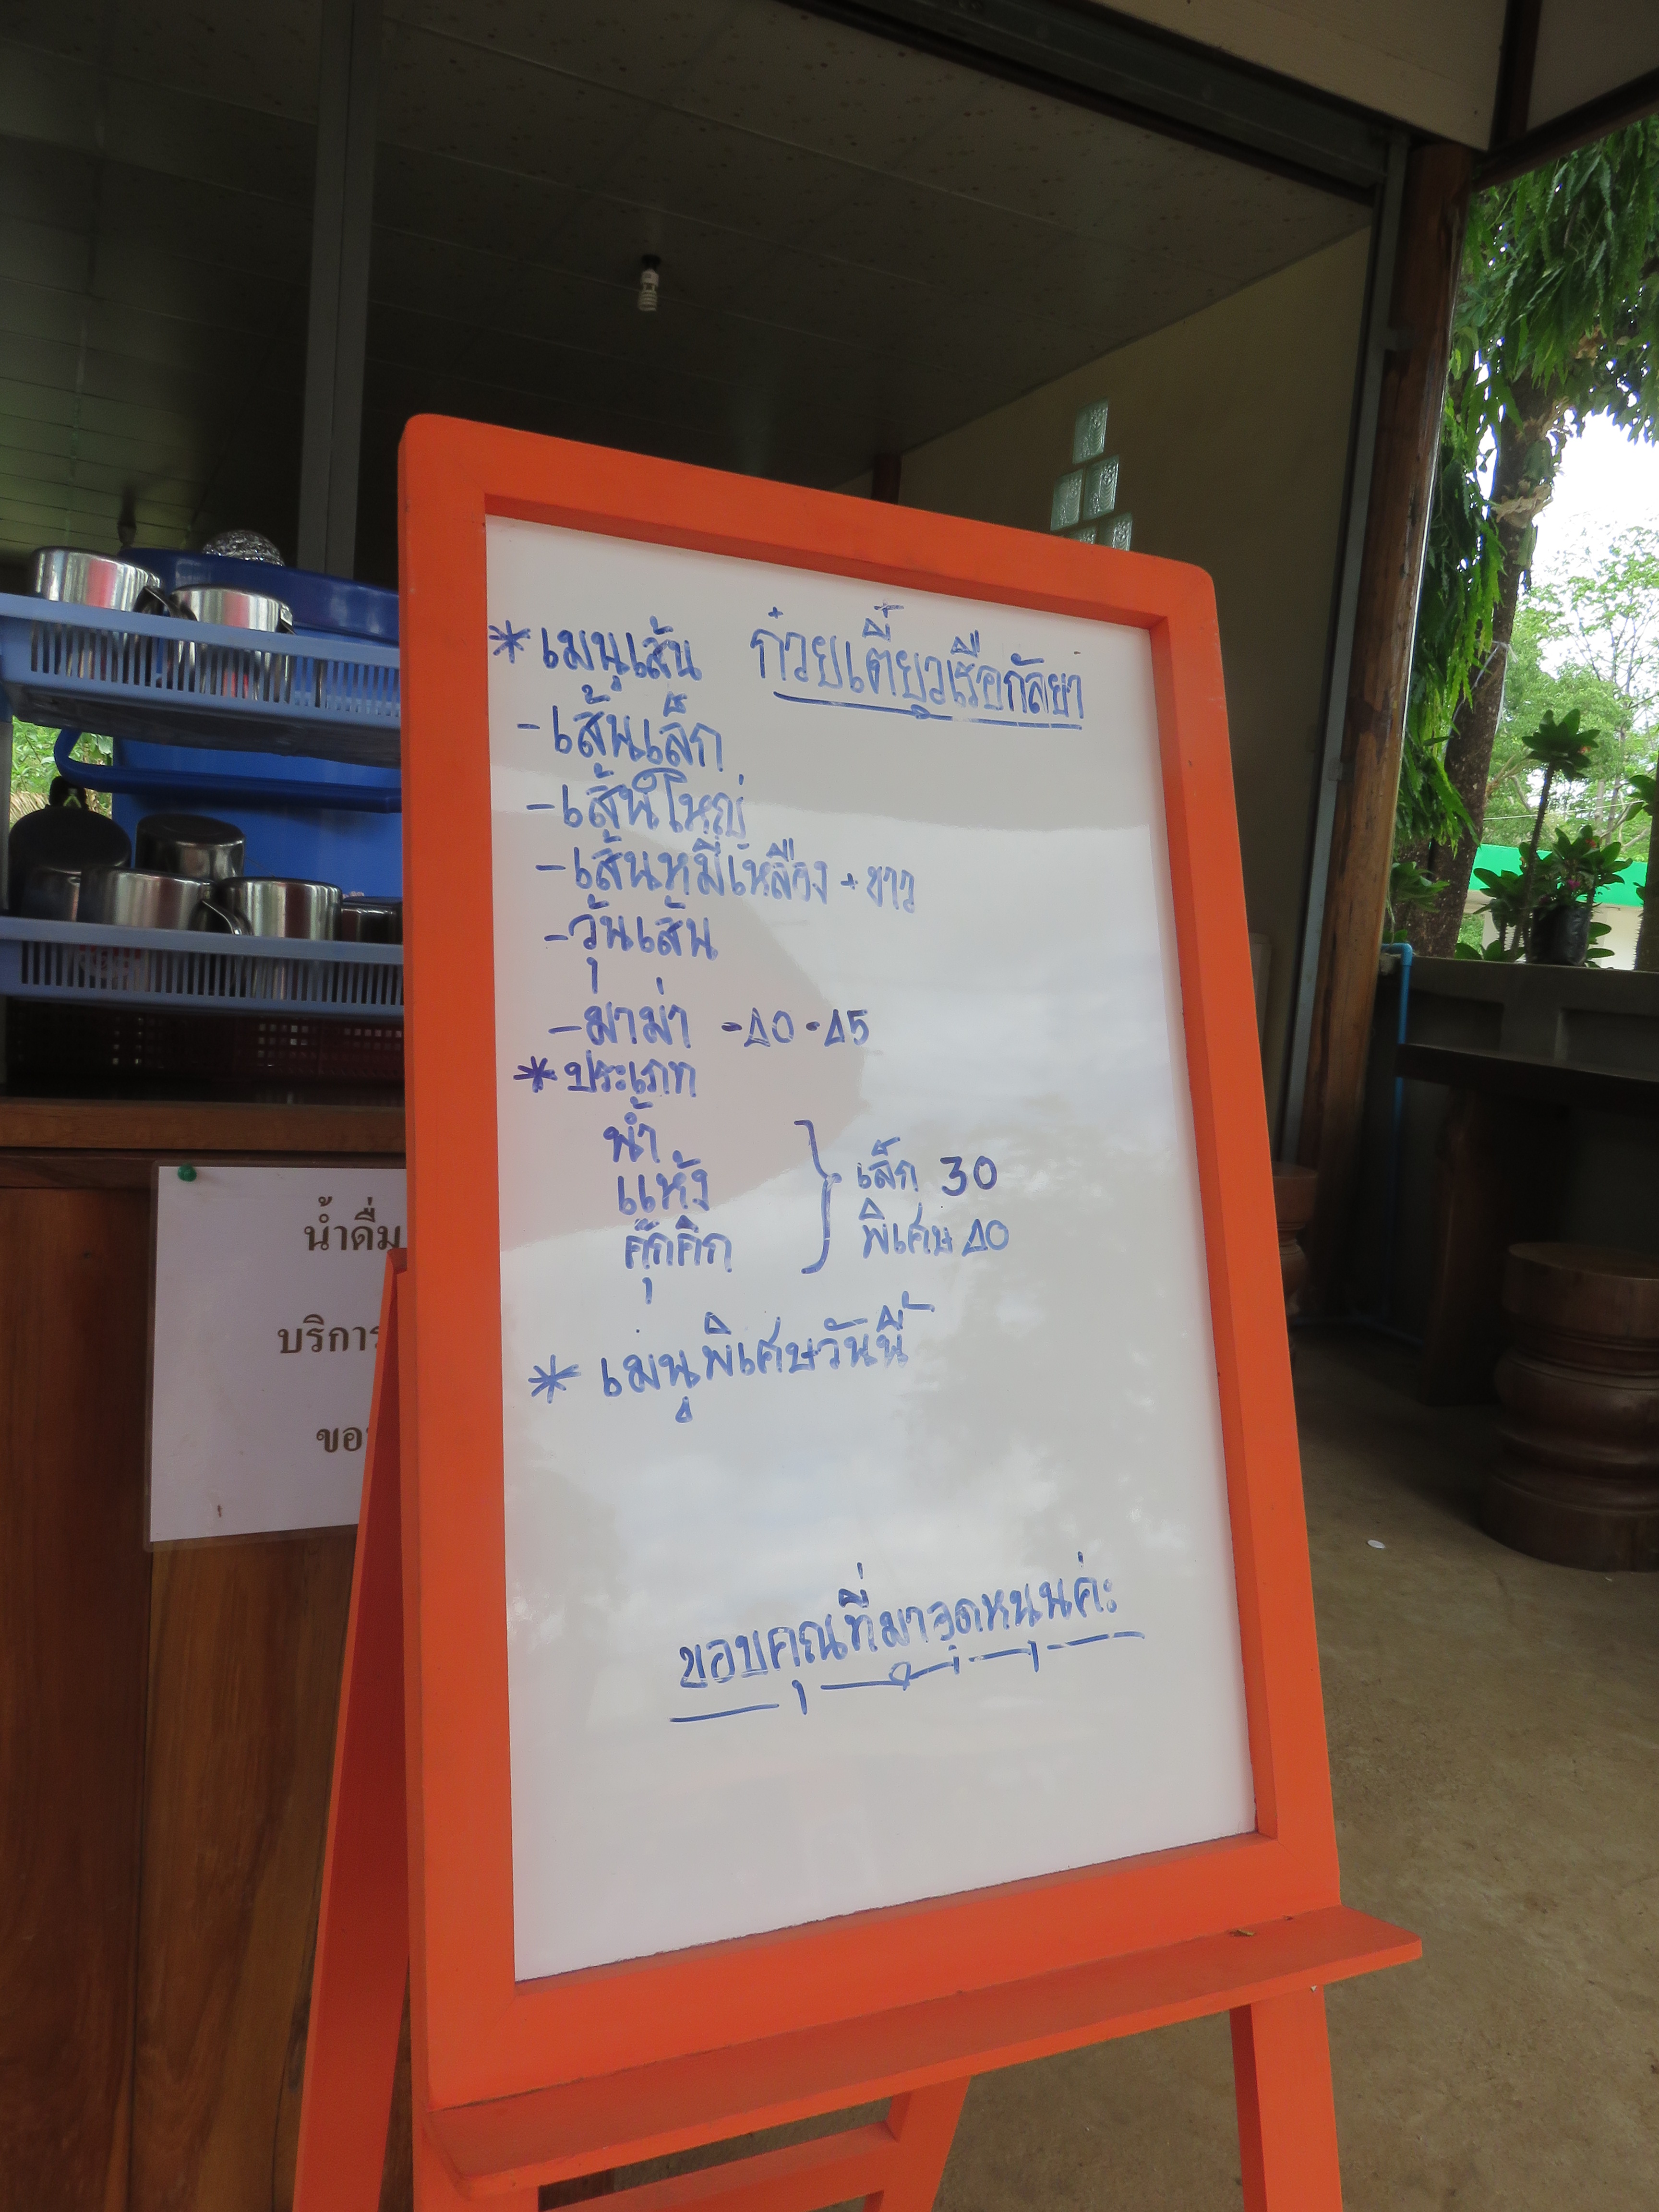 ก๋วยเตี๋ยวเรือกัลยา
* เมนูเส้น
- เส้นเล็ก
- เส้นใหญ่
- เส้นหมี่เหลือง + ขาว
- วุ้นเส้น
- มาม่า - 40 - 45
* ประเภท
น้ำ
แห้ง
คุ๊กคิก
เล็ก 30
พิเศษ 40
* เมนูพิเศษวันนี้
ขอบคุณที่มาอุดหนุนค่ะ
น้ำดื่ม
บริการ
ขอ